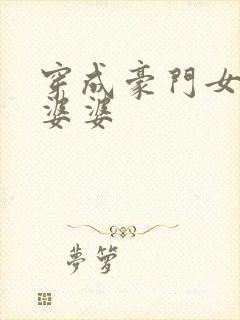 穿成豪門女
婆婆
夢夢